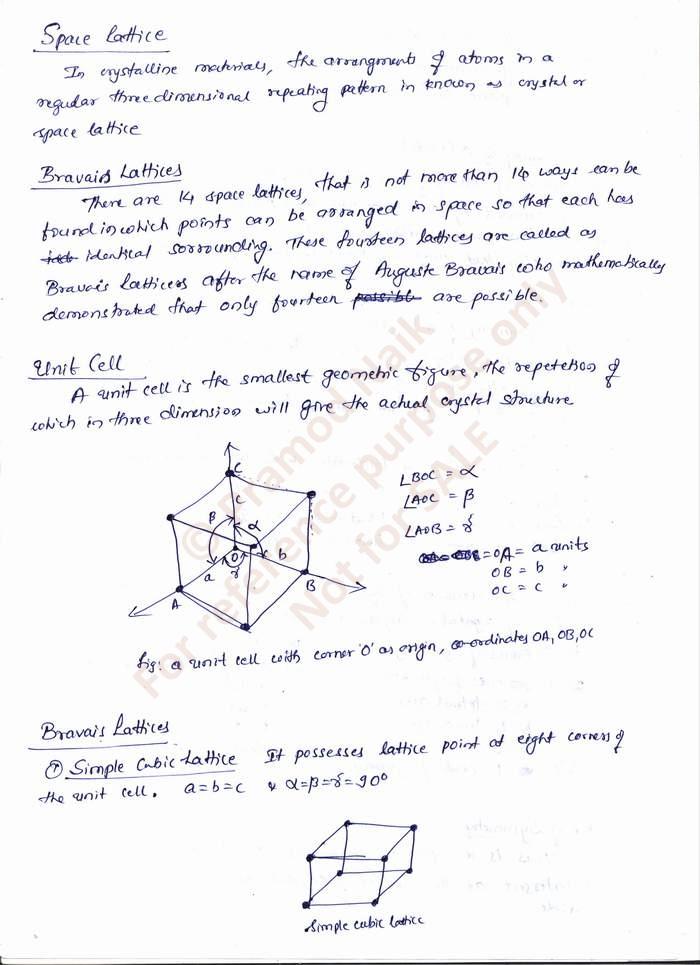 Space Lattice
In crystalline materials, the arrangment of atoms in a
regular three dimensional repeating pattern in known as crystal or
space lattice
Bravais Lattices
There are 14 space lattices, that is not more than 14 ways can be
found in which points can be arranged in space so that each has
identical sorrounding. These fourteen lattices are called as
Bravais Latticess after the name of Auguste Bravais who mathematically
demonstrated that only fourteen possible are possible.
Unit Cell
A unit cell is the smallest geometric figure, the repetetion of
which in three dimension will give the actual crystal structure
C
c
β α
O
a γ b
A B
∠BOC = α
∠AOC = β
∠AOB = γ
= OA = a units
OB = b "
OC = c "
fig: a unit cell with corner 'O' as origin, co-ordinates OA, OB, OC
Bravais Lattices
① Simple Cubic Lattice It possesses lattice point at eight corners of
the unit cell. a=b=c & α=β=γ=90°
Simple cubic lattice
© Pramod Naik
For reference purpose only
Not for SALE